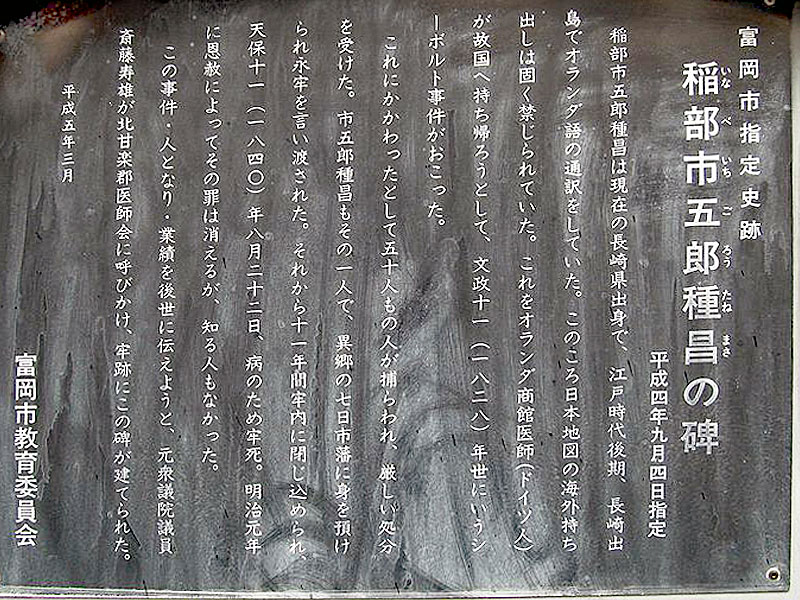 富岡市指定史跡
稲部市五郎種昌の碑
いなべいちごろうたねまさ
平成四年九月四日指定
稲部市五郎種昌は現在の長崎県出身で、江戸時代後期、長崎出
島でオランダ語の通訳をしていた。このころ日本地図の海外持ち
出しは固く禁じられていた。これをオランダ商館医師(ドイツ人)
が故国へ持ち帰ろうとして、文政十一(一八二八)年世にいうシ
ーボルト事件がおこった。
これにかかわったとして五十人もの人が捕らわれ、厳しい処分
を受けた。市五郎種昌もその一人で、異郷の七日市藩に身を預け
られ永牢を言い渡された。それから十一年間牢内に閉じ込められ、
天保十一(一八四〇)年八月二十二日、病のため牢死。明治元年
に恩赦によってその罪は消えるが、知る人もなかった。
この事件・人となり・業績を後世に伝えようと、元衆議院議員
斎藤寿雄が北甘楽郡医師会に呼びかけ、牢跡にこの碑が建てられた。
平成五年三月
富岡市教育委員会